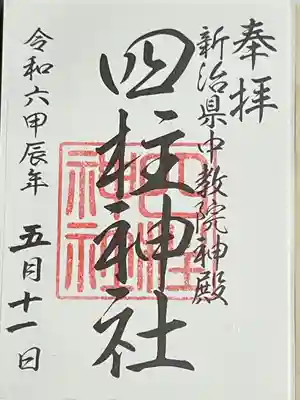 奉拝
新治県中教院神殿
四柱神社
四柱神社
令和六甲辰年
五月十一日